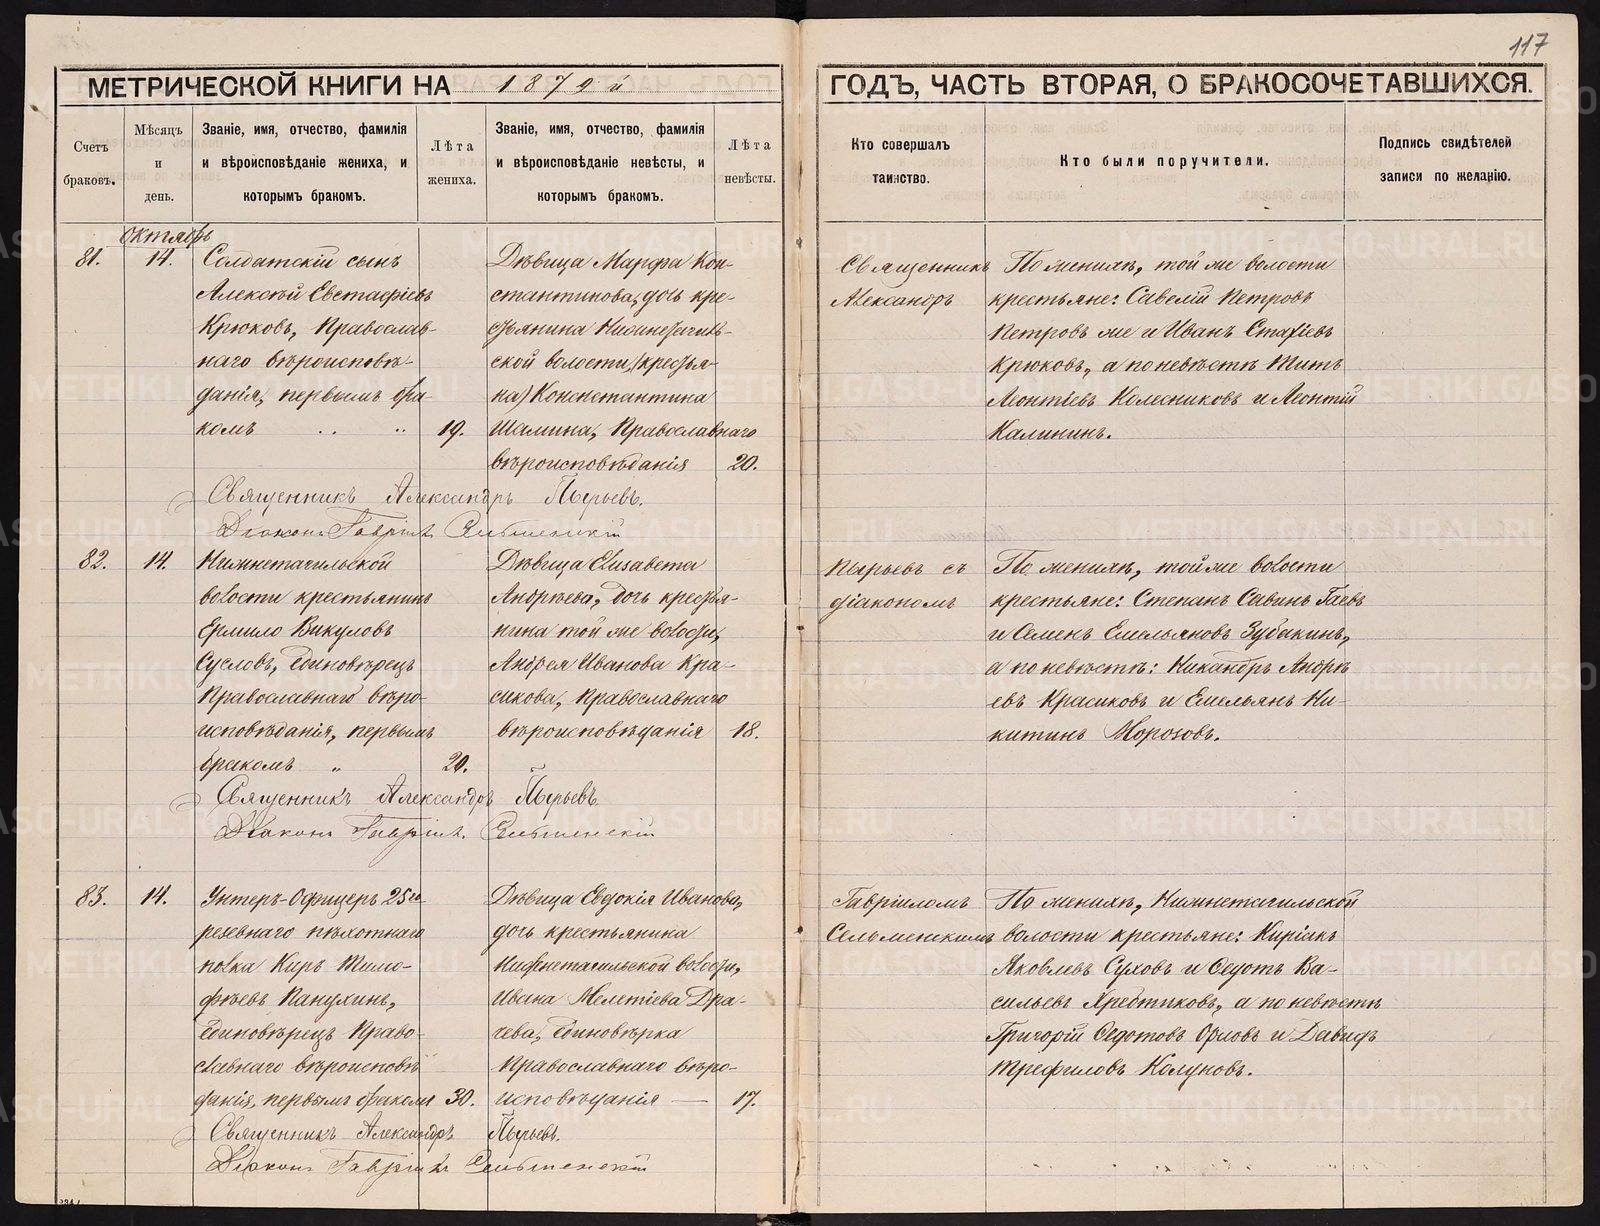 117
МЕТРИЧЕСКОЙ КНИГИ НА 1879 й ГОДЪ, ЧАСТЬ ВТОРАЯ, О БРАКОСОЧЕТАВШИХСЯ.
Счетъ
браковъ.
Мѣсяцъ
и
день.
Званіе, имя, отчество, фамилія
и вѣроисповѣданіе жениха, и
которымъ бракомъ.
Лѣта
жениха.
Званіе, имя, отчество, фамилія
и вѣроисповѣданіе невѣсты, и
которымъ бракомъ.
Лѣта
невѣсты.
Кто совершалъ
таинство.
Кто были поручители.
Подпись свидѣтелей
записи по желанію.
октябрь
81.
14.
Солдатскій сынъ
Алексѣй Евстафіевъ
Крюковъ, Православ-
наго вѣроисповѣ-
данія, первымъ бра-
комъ
19.
Дѣвица Марфа Кон-
стантинова, дочь кре-
стьянина Нижнетагиль-
ской волости, (крестья-
на) Констнтина
Шамина, Православнаго
вѣроисповѣданія
20.
Священникъ
Александръ
По женихѣ, той же волости
крестьяне: Савелій Петровъ
Петровъ же и Иванъ Стахіевъ
Крюковъ, а по невѣстѣ Титъ
Леонтіевъ Колесниковъ и Леонтій
Калининъ.
Священникъ Александръ Пырьевъ.
Діаконъ Гавріилъ Сельменскій
82.
14.
Нижнетагильской
волости крестьянинъ
Ермило Викуловъ
Сусловъ, единовѣрецъ
Православнаго вѣро-
исповѣданія, первымъ
бракомъ "
20.
Дѣвица Елисавета
Андрѣева, дочь крестья-
нина той же волости,
Андрея Иванова Кра-
сикова, Православнаго
вѣроисповѣданія
18.
Пырьевъ съ
діакономъ
По женихѣ, той же волости
крестьяне: Степанъ Савинъ Гаевъ
и Семенъ Емельяновъ Зубакинъ,
а по невѣстѣ: Никандръ Андрѣ
евъ Красиковъ и Емельянъ Ни-
китинъ Морозовъ.
Священникъ Александръ Пырьевъ.
Діаконъ Гавріилъ Сельменскій
83.
14.
Унтеръ-Офицеръ 25го
резевнаго пѣхотнаго
полка Киръ Тимо-
фѣевъ Панухинъ,
единовѣрецъ Право-
славнаго вѣроисповѣ
данія, первымъ бракомъ
30.
Дѣвица Евдокія Иванова,
дочь крестьянина
Нижнетагильской волости,
Ивана Мелетіева Дра-
чева, единовѣрка
Православнаго вѣро-
исповѣданія —
17.
Гавріиломъ
Сельменскимъ
По женихѣ, Нижнетагильской
волости крестьяне: Киріакъ
Яковлевъ Суховъ и Ѳедотъ Ва-
сильевъ Хребтиковъ, а по невѣстѣ
Григорій Ѳедотовъ Орловъ и Давидъ
Трефиловъ Колуновъ.
Священникъ Александръ Пырьевъ.
Діаконъ Гавріилъ Сельменскій